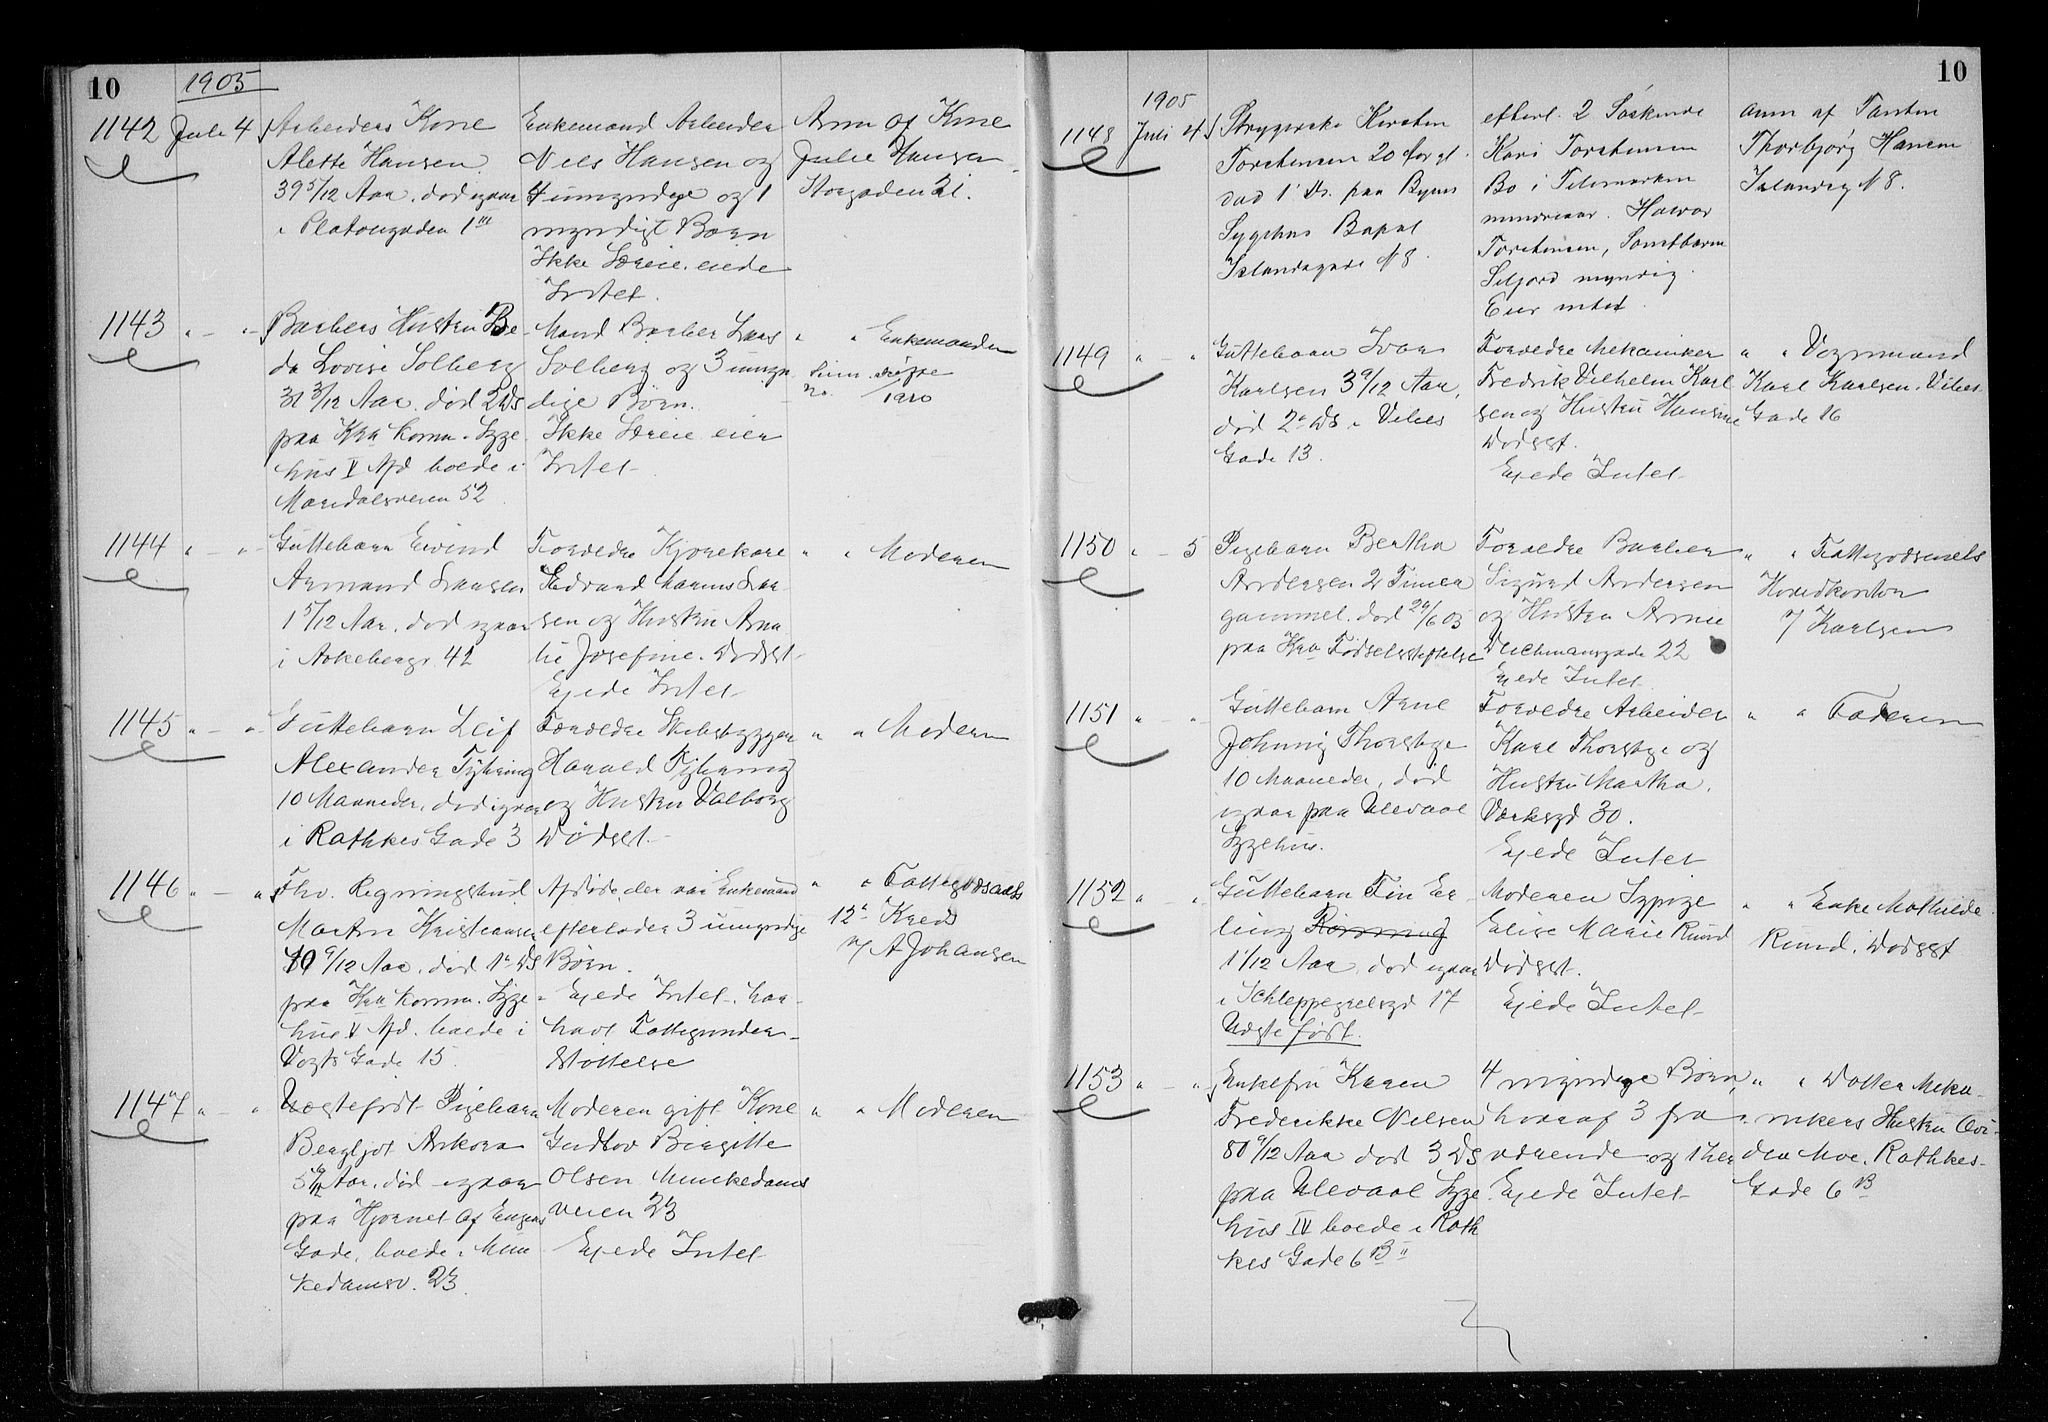 10
1905
1142 Juli 4
Arbeiders Kone
Alette Hansen
39 5/12 Aar. død igaar
i Platousgaden 1 III
Enkemand Arbeider
Nils Hansen og
4 umyndige og 1
myndigt Børn
Ikke Særeie. eiede
Intet.
Anm af Kone
Julie Hansen
Storgaden 21.
1143 " — "
Barbers Hustru Be
da Lovise Solberg
31 3/12 Aar. død 2 ds
paa Kra Komm. Syge
hus V Afd boede i
Maridalsveien 52
Mand Barber Lars
Solberg og 3 umyn
dige Børn.
Ikke Særeie eier
Intet
" " Enkemanden
1910
1144 " — "
Guttebarn Eivind
Armand Larsen
1 5/12 Aar. død igaar
i Aakebergv. 42
Forældre Kjørekarl
Edvard Marius Lar
sen og Hustru Ama
lie Josefine. Dødsst
Ejede Intet
" " Moderen
1145 " — "
Guttebarn Leif
Alexander Fyhring
10 Maaneder. død igaar
i Rathkes Gade 3
Forældre Skibsbygger
Harald Fyhring
og Hustru Valborg
Dødsst.
" " Moderen
1146 " — "
Fhv. Regningsbud
Martin Kristiansen
9/12 Aar. død 1 ds
paa Kra Komm. Syge
hus V Afd. boede i
Vogts Gade 15
Afdøde, der var Enkemand
efterlader 3 umyndige
Børn.
Ejede Intet. har
havt Fattigunder
støttelse
" " Fattigvæsenets
12te Kreds
v/ A Johansen
1147 " — "
Uægtefødt Pigebarn
Bergljot Askorn
Aar. død igaar
paa Hjørnet af Engens
Gade, boede i Mun
kedamsv. 23
Moderen gift Kone
Gudlov Birgitte
Olsen Munkedams
veien 23
Ejede Intet
" " Moderen
10
1905
1148 Juli 4
Strygerske Kirsten
Torstensen 20 Aar gl.
død 1 ds. paa Byens
Sygehus Bopæl
Islandsgade N 8.
efterl. 2 Søskende
Kari Torstensen
Bo i Telemarken
mindreaar. Halvor
Torstensen, Samtbaarn
Seljord myndig
Eier intet.
anm af Tanten
Thorbjørg Hansen
Islandsg N 8.
1149 " — "
Guttebarn Ivar
Karlsen 3 9/12 Aar.
død 2 ds i Vibes
Gade 13.
Forældre Mekaniker
Fredrik Vilhelm Karl
sen og Hustru Hansine
Dødsst.
Ejede Intet
" " Vognmand
Karl Karlsen. Vibes
Gade 16
1150 " — 5
Pigebarn Bertha
Andersen 2 Timer
gammel. død 29/6 05
paa Kra Fødselsstiftelse
Forældre Barber
Sigurd Andersen
og Hustru Annie
Deichmansgade 22
Ejede Intet
" " Fattigvæsenets
Hovedkontor
v/ Karlsen
1151 " — "
Guttebarn Arne
Johnny Thorsbye
10 Maaneder. død
igaar paa Ullevaal
Sygehus.
Forældre Arbeider
Karl Thorsbye og
Hustru Martha.
Værksgd 30.
Ejede Intet
" " Faderen
1152 " — "
Guttebarn Fin Er
ling
1 1/12 Aar. død igaar
i Schleppegrelsgd 17
Uægte født.
Moderen Sypige
Elise Marie Ruud
Dødsst.
Ejede Intet
" " Enke Mathilde
Ruud. Dødsst
1153 " — "
Enkefru Karen
Frederikke Nilsen
80 9/12 Aar død 3 ds
paa Ullevaal Syge
hus IV boede i Rath
kes Gade 6 B II
4 myndige Børn
hvoraf 3 fra
værende og 1 her
Ejede Intet
" " Datter Meka
nikers Hustru Ovi
dia Moe. Rathkes
Gade 6 B